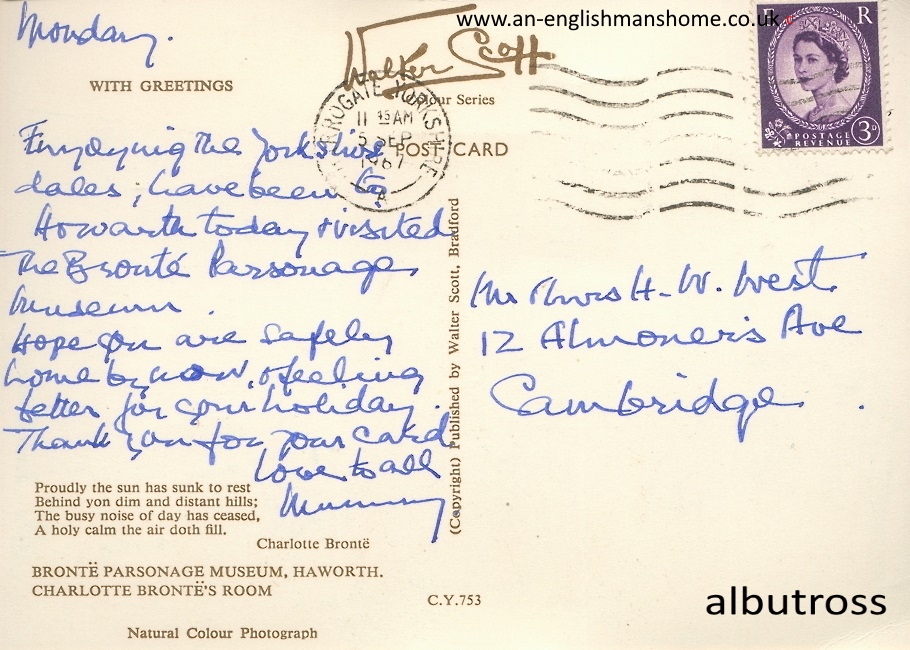 www.an-englishmanshome.co.uk
Monday.
WITH GREETINGS
Walter Scott
Colour Series
POST CARD
HARROGATE YORKSHIRE
11 15 AM
5 SEP
1967
A
E R
POSTAGE
REVENUE
3D
Enjoying the Yorkshire
dales, have been to
Howarth today & visited
The Bronté Parsonage
Museum.
Hope you are safely
home by now, & feeling
better for your holiday.
Thank you for your card
Love to all
Mummy
Mr & Mrs H. W. West.
12 Almoner's Ave
Cambridge.
(Copyright) Published by Walter Scott, Bradford
Proudly the sun has sunk to rest
Behind yon dim and distant hills;
The busy noise of day has ceased,
A holy calm the air doth fill.
Charlotte Brontë
BRONTË PARSONAGE MUSEUM, HAWORTH.
CHARLOTTE BRONTË'S ROOM
C.Y.753
Natural Colour Photograph
albutross